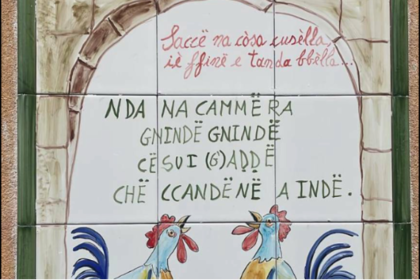 Saccë na còsa cusèlla,
jè ffinë e tanda bbèlla...
NDA NA CAMMËRA
GNINDË GNINDË
CË SUI (G)AḌḌË
CHË CCANDËNË A INDË.